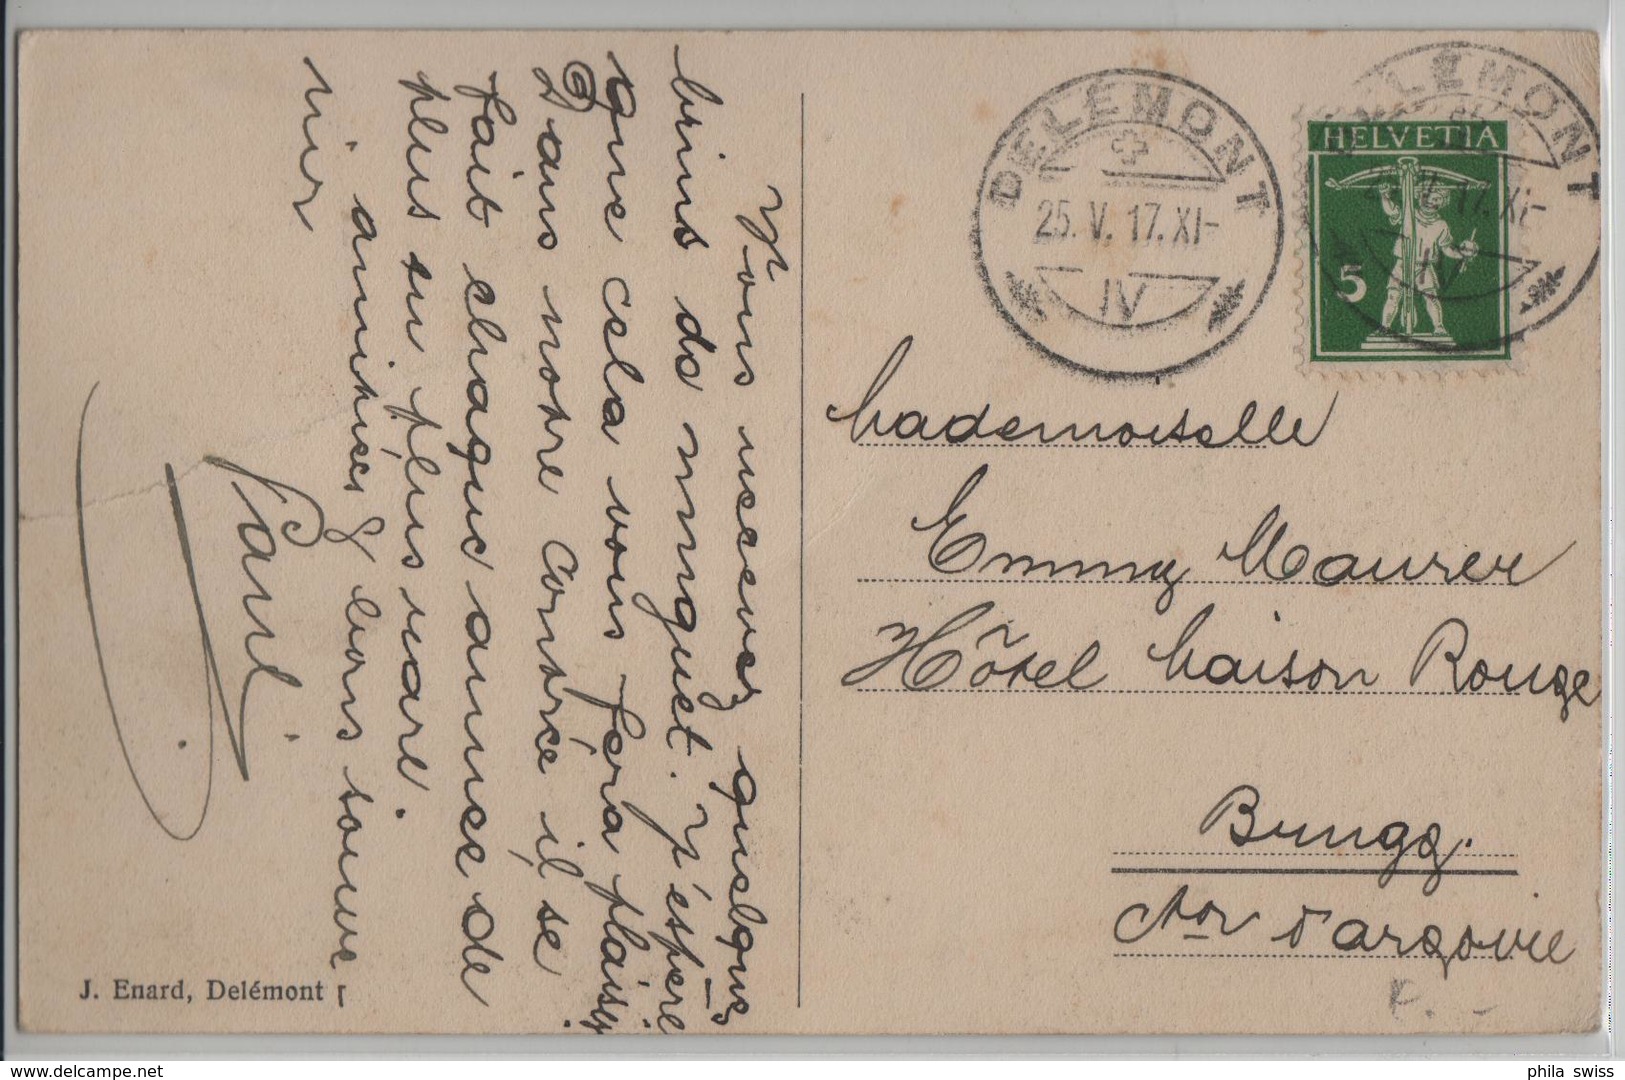 Vous recevez quelques
brins de muguet. J'espère
que cela vous fera plaisir.
Dans notre contrée il se
fait chaque année de
plus en plus rare.
amitiés & bons souve
nir
Paul
J. Enard, Delémont
DELÉMONT
25. V. 17. XI-
IV
DELÉMONT
17. XI-
IV
HELVETIA
5
Mademoiselle
Emmy Maurer
Hôtel Maison Rouge
Brugg.
Cton d'argovie
delcampe.net
phila swiss